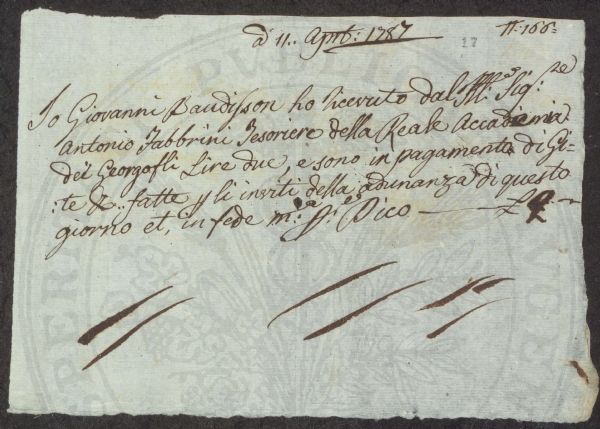 a 11.. Aprile: 1787 27 N. 166=
Io Giovanni Baudisson ho ricevuto dal Ill: Sig:re
Antonio Fabbrini Tesoriere della Reale Accademia
dei Georgofli Lire due, e sono in pagamento di Gi=
:te 2.. fatte p li inviti della adunanza di questo
giorno et, in fede m:a pp:a Dico — £ 2 -